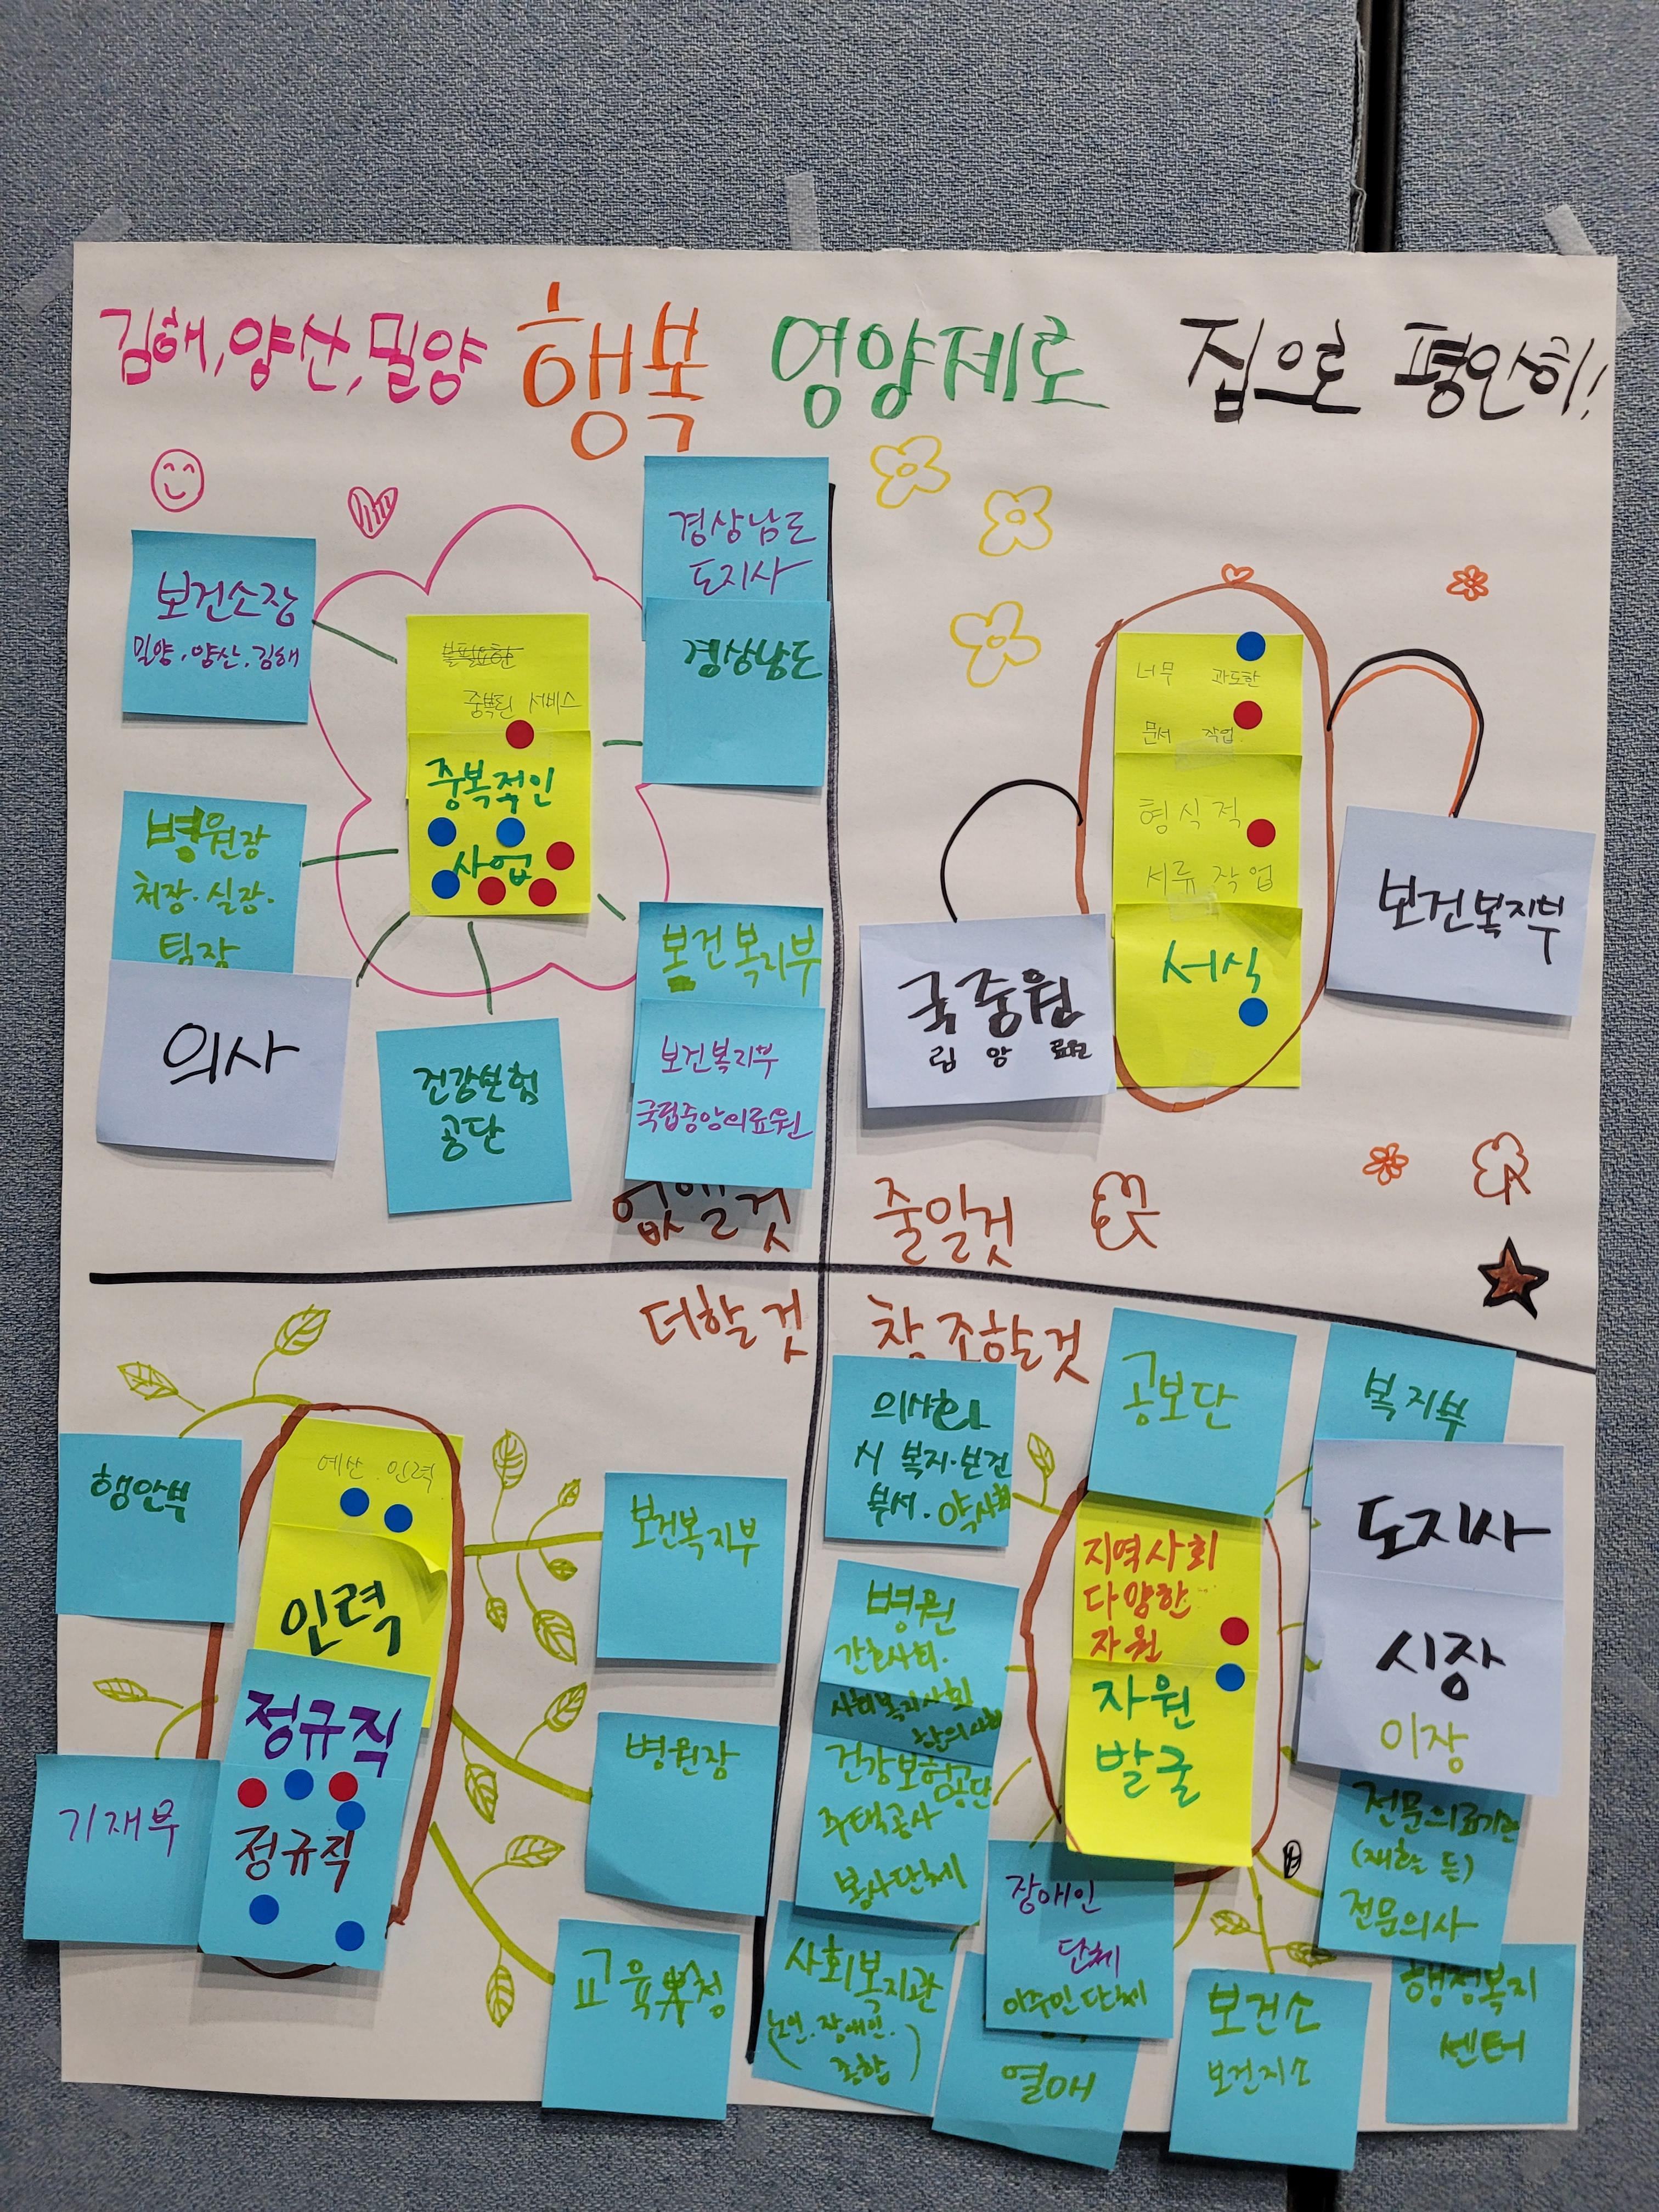 김해, 양산, 밀양 행복 영양제로 집으로 평안히!
보건소장
밀양, 양산, 김해
경상남도
도지사
경상남도
불필요한
중복된 서비스
중복적인
사업
병원장
처장·실장·
팀장
의사
건강보험
공단
보건복지부
보건복지부
국립중앙의료원
없앨것
너무 과도한
문서 작업.
형식적
서류 작업
서식
국중원
립 앙 료원
보건복지부
줄일것
더할것
행안부
예산. 인력
인력
정규직
정규직
기재부
보건복지부
병원장
교육청
창조할것
의사회
시 복지·보건
부서. 약사회
공보단
복지부
도지사
시장
이장
지역사회
다양한
자원
자원
발굴
병원
간호사회.
사회복지사회
한의사회
건강보험공단
주택공사
봉사단체
전문의료기관
(재활 등)
전문의사
장애인
단체
이주민단체
사회복지관
(노인. 장애인.
종합)
열애
보건소
보건지소
행정복지
센터